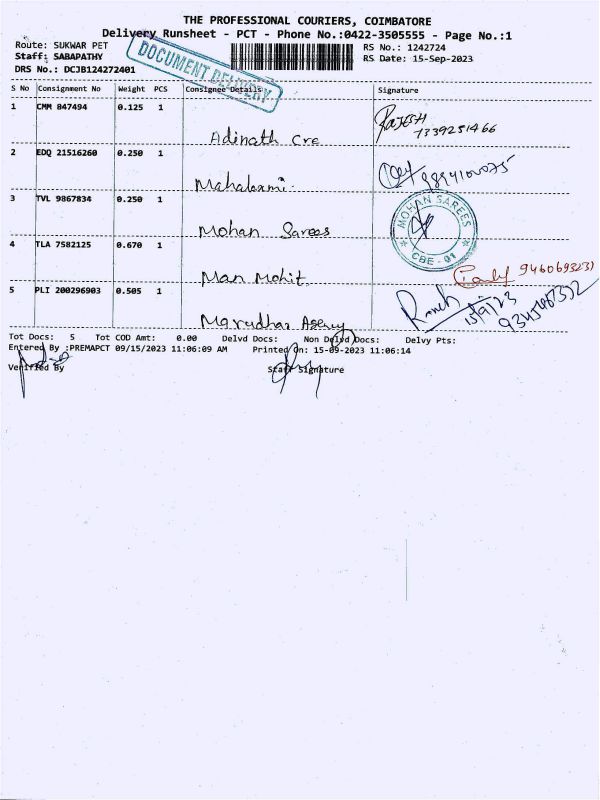 THE PROFESSIONAL COURIERS, COIMBATORE
Delivery Runsheet - PCT - Phone No.:0422-3505555 - Page No.:1
Route: SUKWAR PET
RS No.: 1242724
Staff: SABAPATHY
RS Date: 15-Sep-2023
DRS No.: DCJB124272401
DOCUMENT DELIVERY
S No Consignment No Weight PCS Consignee Details Signature
1 CMM 847494 0.125 1 Adinath Cre RAJESH
7339251466
2 EDQ 21516260 0.250 1 Mahalaxmi
3 TVL 9867834 0.250 1 Mohan Sarees
MOHAN SAREES
CBE - 01
4 TLA 7582125 0.670 1 Man Mohit
5 PLI 200296903 0.505 1 Marudhar Agency
15/9/23
Tot Docs: 5 Tot COD Amt: 0.00 Delvd Docs: Non Delvd Docs: Delvy Pts:
Entered By :PREMAPCT 09/15/2023 11:06:09 AM Printed On: 15-09-2023 11:06:14
Verified By Staff Signature